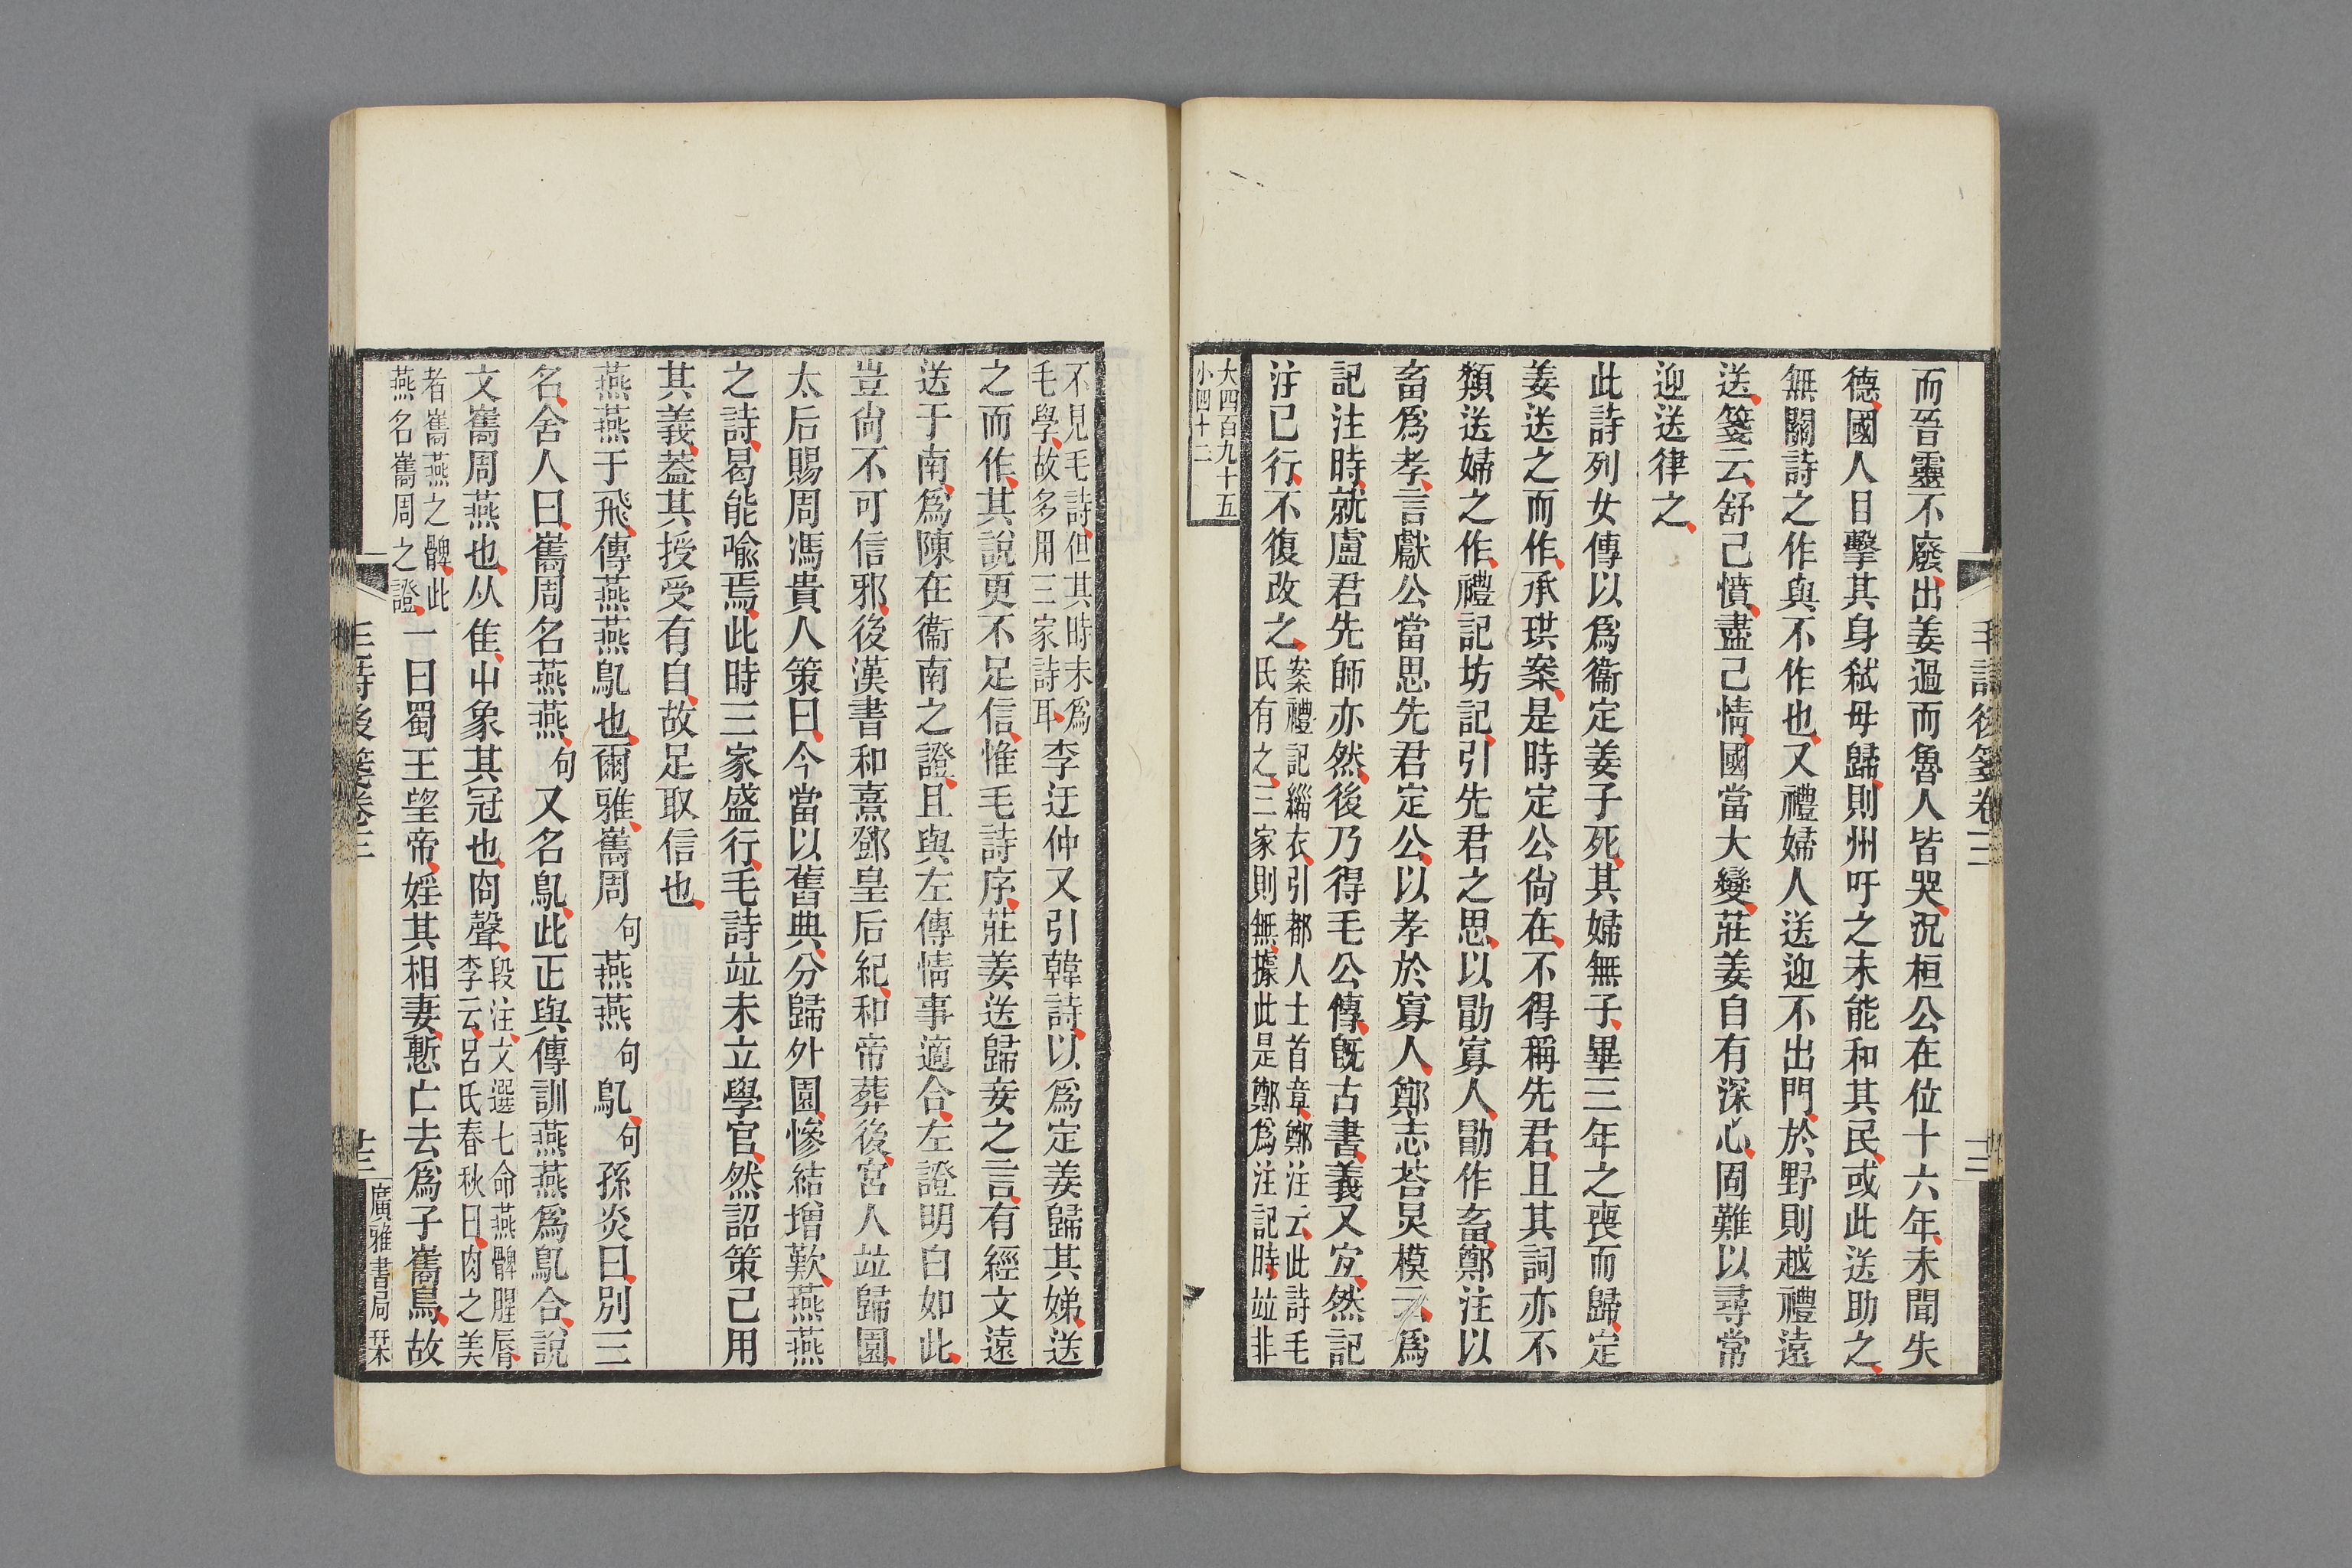 毛詩後箋卷三
十二
而晉靈不廢出姜過而魯人皆哭況桓公在位十六年未聞失
德國人目擊其身弒毋歸則州吁之未能和其民或此送助之
無關詩之作與不作也又禮婦人送迎不出門於野則越禮遠
送箋云舒己憤盡己情國當大變莊姜自有深心固難以尋常
迎送律之
此詩列女傳以爲衞定姜子死其婦無子畢三年之喪而歸定
姜送之而作承珙案是時定公尙在不得稱先君且其詞亦不
類送婦之作禮記坊記引先君之思以勖寡人勖作畜鄭注以
畜爲孝言獻公當思先君定公以孝於寡人鄭志荅炅模云爲
記注時就盧君先師亦然後乃得毛公傳旣古書義又宜然記
注已行不復改之案禮記緇衣引都人士首章鄭注云此詩毛
氏有之三家則無據此是鄭爲注記時竝非
大四百九十五
小四十二
不見毛詩但其時未爲
毛學故多用三家詩耳李迂仲又引韓詩以爲定姜歸其娣送
之而作其說更不足信惟毛詩序莊姜送歸妾之言有經文遠
送于南爲陳在衞南之證且與左傳情事適合左證明白如此
豈尙不可信邪後漢書和熹鄧皇后紀和帝葬後宮人竝歸園
太后賜周馮貴人策曰今當以舊典分歸外園慘結增歎燕燕
之詩曷能喻焉此時三家盛行毛詩竝未立學官然詔策已用
其義葢其授受有自故足取信也
燕燕于飛傳燕燕鳦也爾雅巂周句燕燕句鳦句孫炎曰別三
名舍人曰巂周名燕燕句又名鳦此正與傳訓燕燕爲鳦合說
文巂周燕也从隹屮象其冠也㕯聲段注文選七命燕髀腥脣
李云呂氏春秋曰肉之美
者巂燕之髀此
燕名巂周之證一曰蜀王望帝婬其相妻慙亡去爲子巂鳥故
毛詩後箋卷三
十三
廣雅書局栞